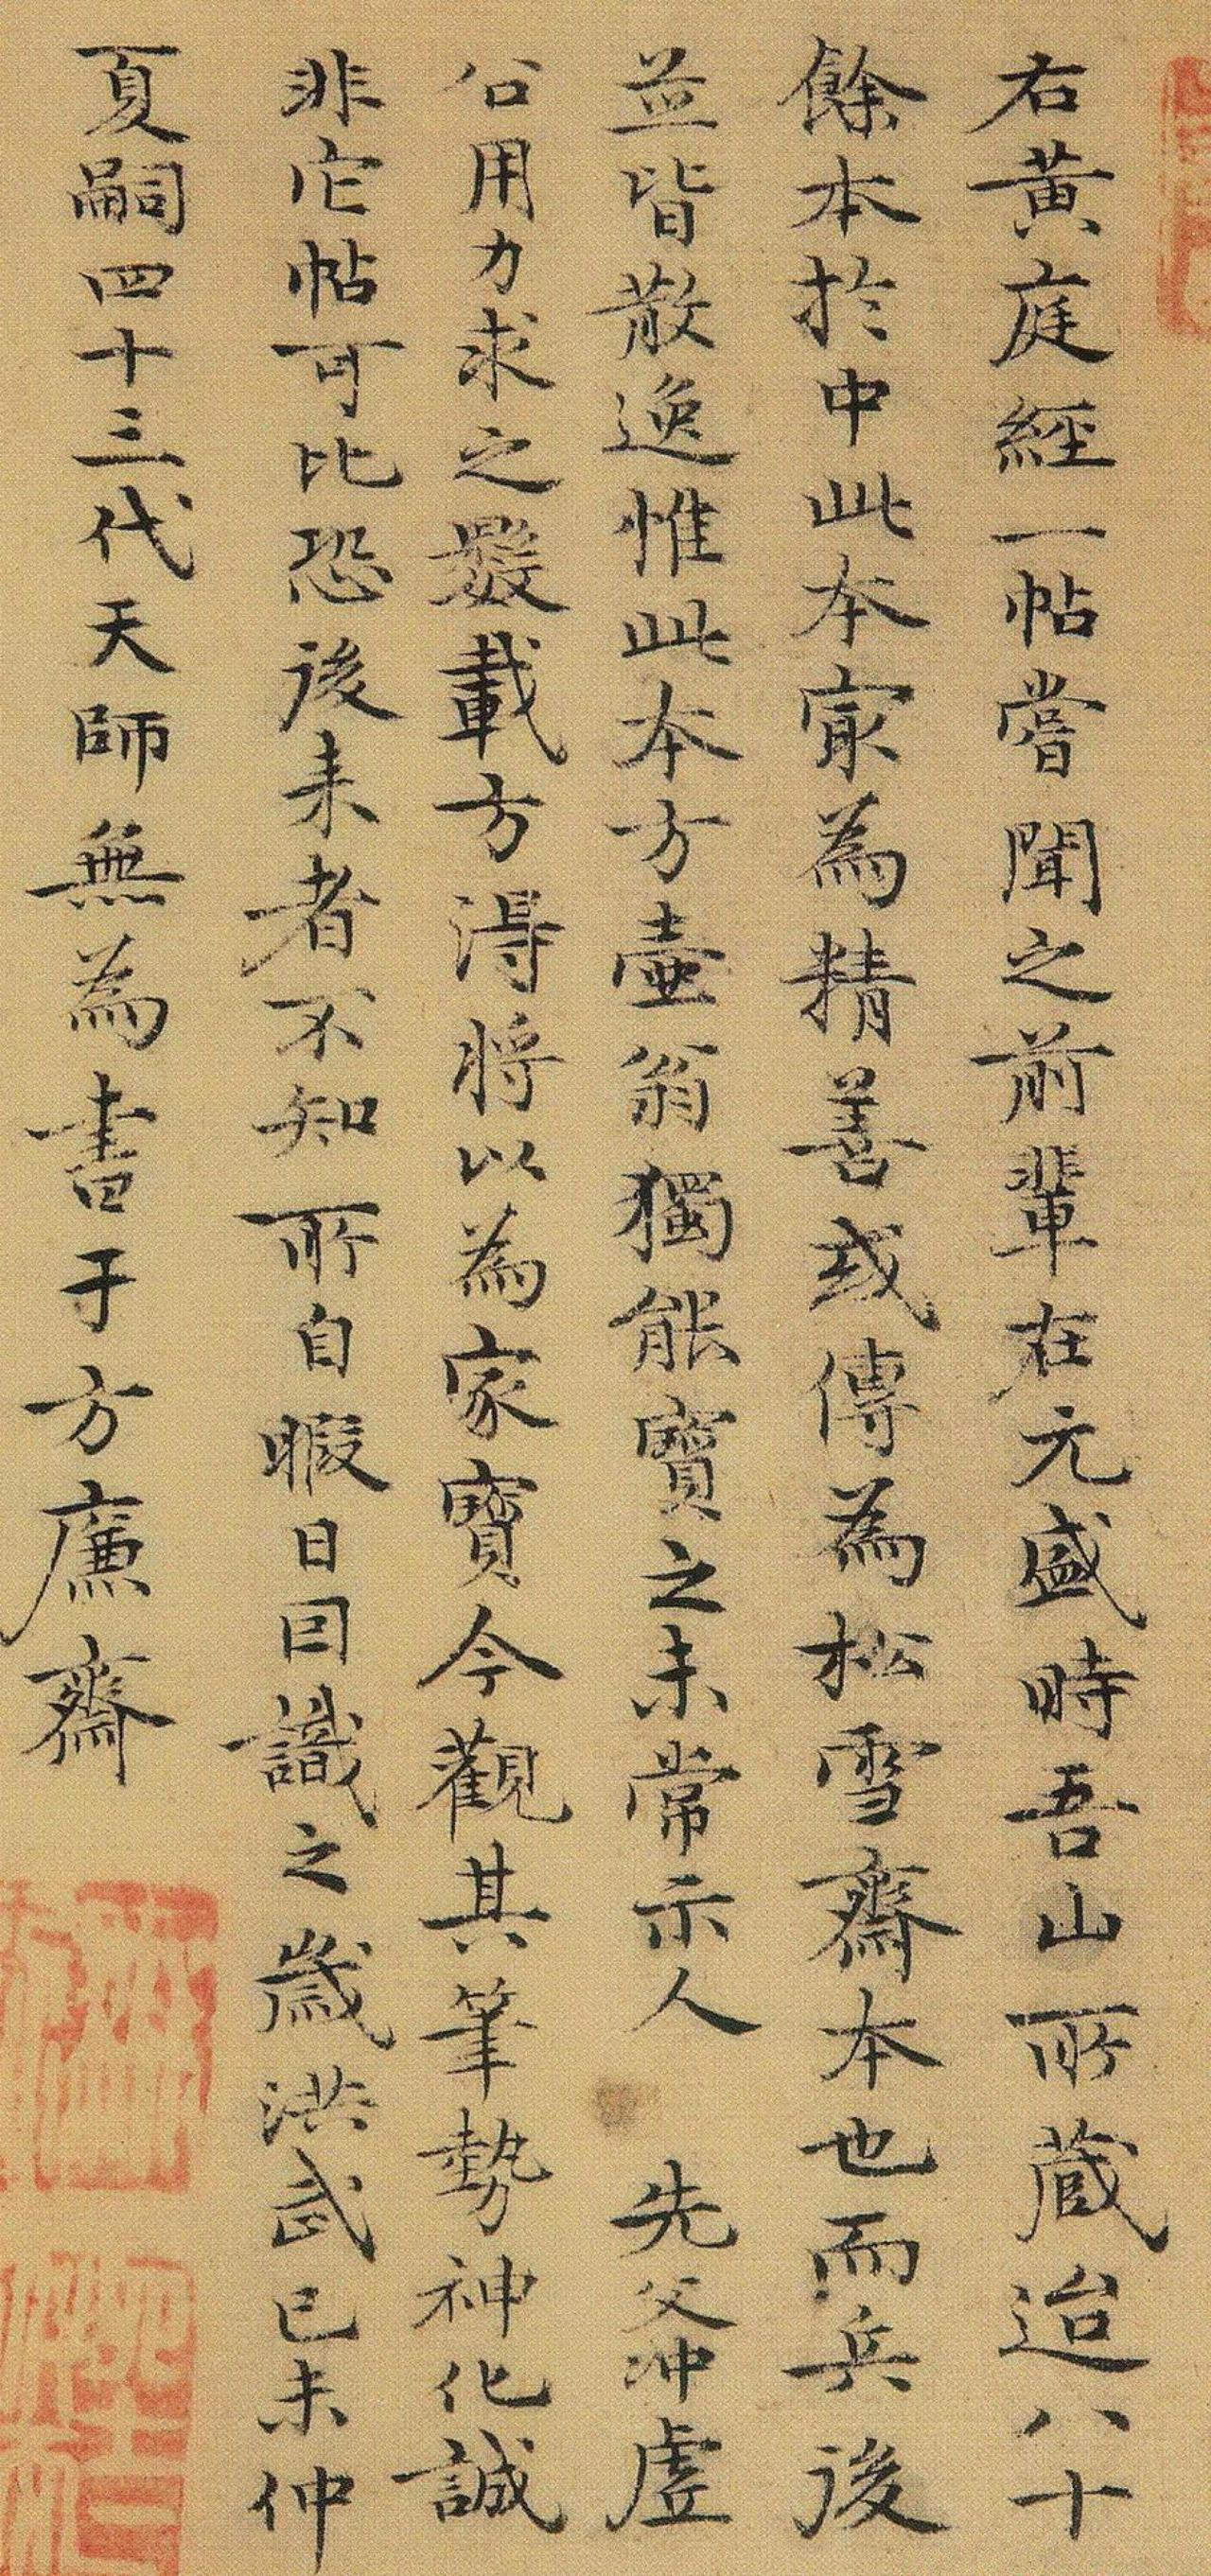 右黃庭經一帖嘗聞之前輩在元盛時吾山所蔵迨八十
餘本於中此本㝡為精善或傳為松雪齋本也而兵後
並皆散逸惟此本方壺翁獨能寶之未常示人 先父冲虛
公用力求之數載方得將以為家寶今觀其筆勢神化誠
非它帖可比恐後来者不知所自暇日因識之歲洪武己未仲
夏嗣四十三代天師無為書于方廉齋